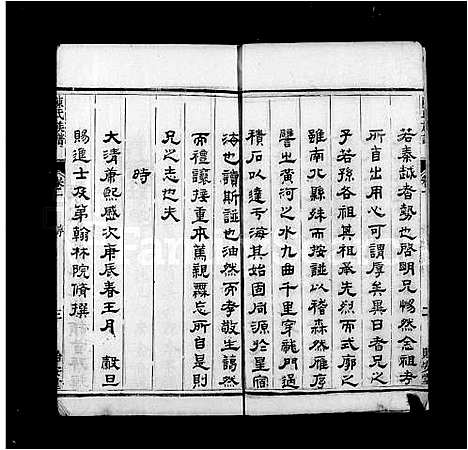 若秦越者勢也啓明兄惕然念祖考
所自出用心可謂厚矣異日者兄之
子若孫各祖其祖承先烈而式廓之
雖南北縣殊而按誼以稽森然雁序
譬出黃河之水九曲千里穿龍門過
積石以達于海其始固同源於星宿
海也讀斯誼也油然而孝敬生藹然
而禮讓接重本篤親霖忘所自是則
兄之志也夫
時
大清康熙歲次庚辰春王月 穀旦
賜進士及第翰林院脩撰
陳氏族譜 卷一 序 三